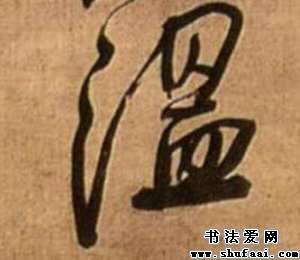 温
书法爱网
www.shufaai.com